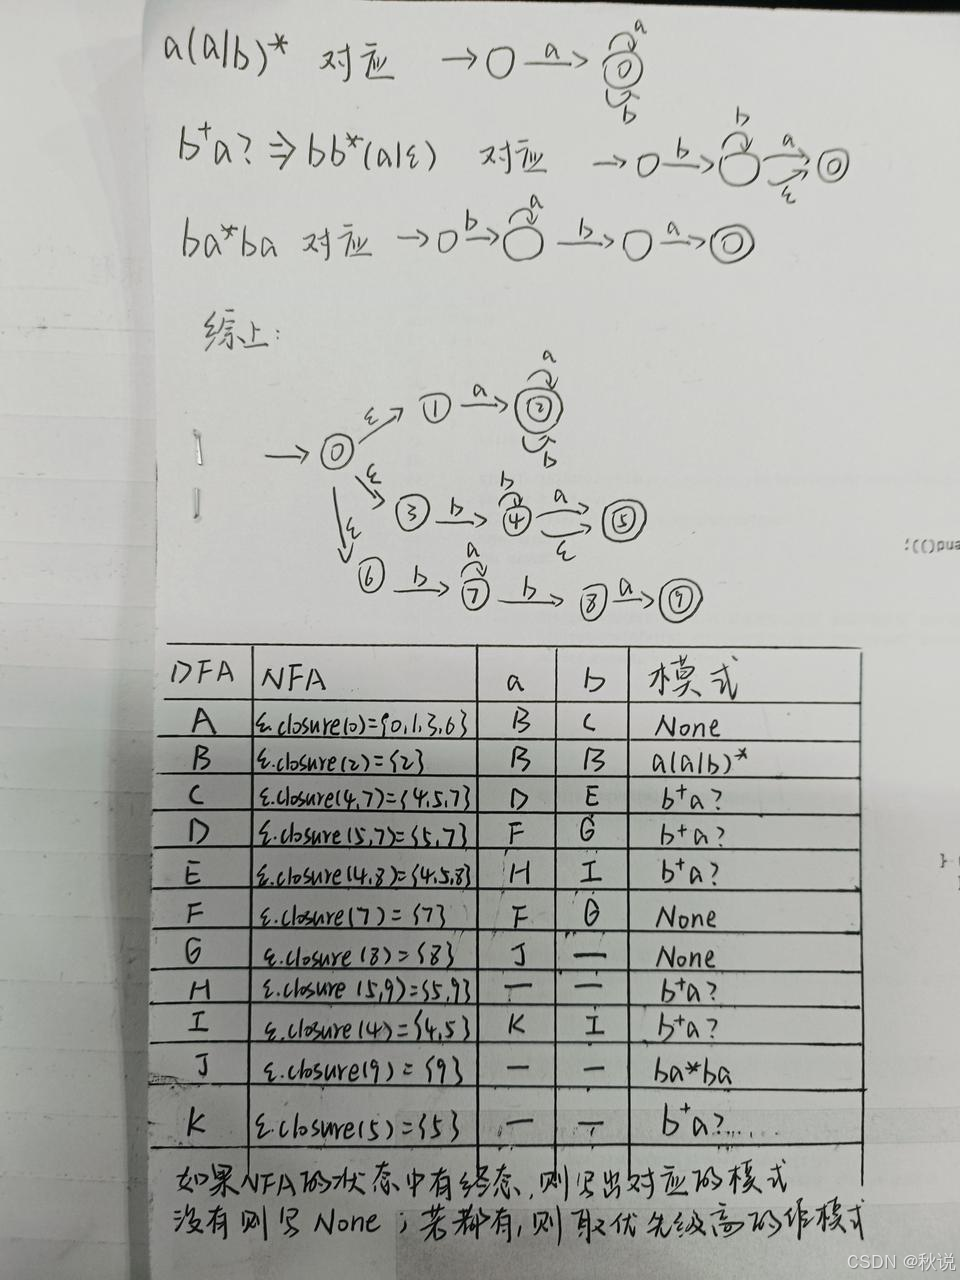 a(a|b)* 对应 → ○ a → ◎ a b
b⁺a? ⇒ bb*(a|ε) 对应 → ○ b → ○ b a ε ◎
ba*ba 对应 → ○ b → ○ a b → ○ a → ◎
综上:
→ 0 ε 1 a 2 a b
ε 3 b 4 b a ε 5
ε 6 b 7 a b 8 a 9
DFA NFA a b 模式
A ε.closure(0)={0,1,3,6} B C None
B ε.closure(2)={2} B B a(a|b)*
C ε.closure(4,7)={4,5,7} D E b⁺a?
D ε.closure(5,7)={5,7} F G b⁺a?
E ε.closure(4,8)={4,5,8} H I b⁺a?
F ε.closure(7)={7} F G None
G ε.closure(8)={8} J — None
H ε.closure(5,9)={5,9} — — b⁺a?
I ε.closure(4)={4,5} K I b⁺a?
J ε.closure(9)={9} — — ba*ba
K ε.closure(5)={5} — — b⁺a?.....
如果NFA的状态中有终态,则写出对应的模式
没有则写None;若都有,则取优先级高的作模式
CSDN @秋说